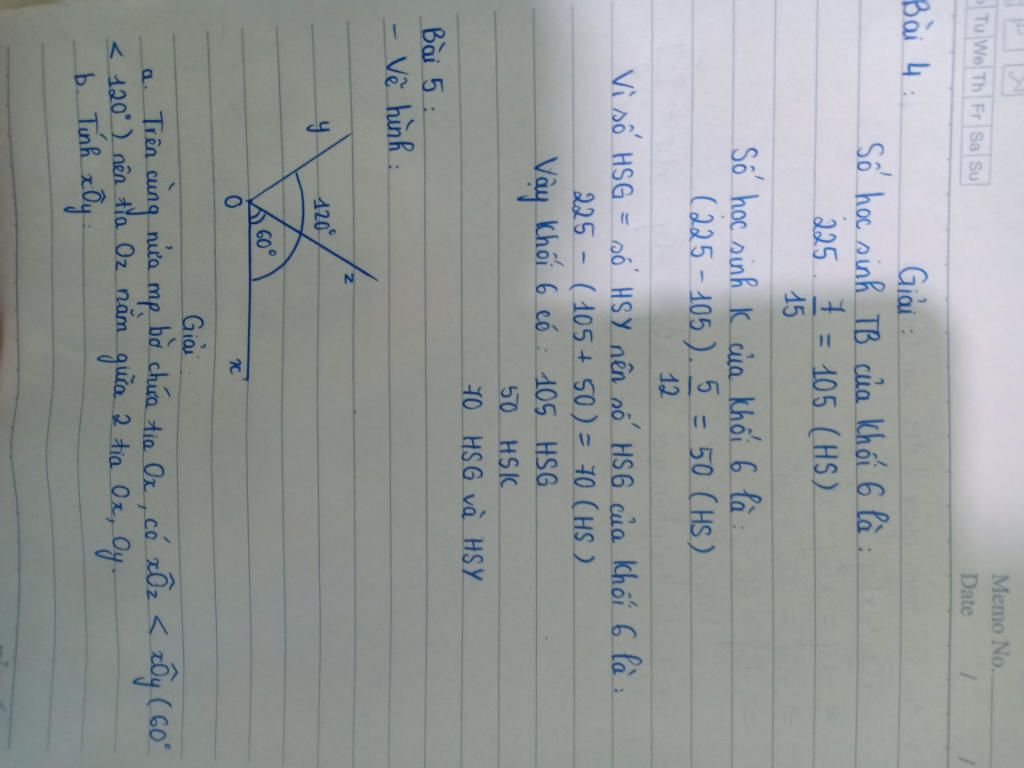 Memo No.
Date / /
Tu We Th Fr Sa Su
Bài 4:
Giải:
Số học sinh TB của khối 6 là:
225 . 7/15 = 105 (HS)
Số học sinh K của khối 6 là:
(225 - 105) . 5/12 = 50 (HS)
Vì số HSG = số HSY nên số HSG của khối 6 là:
225 - (105 + 50) = 70 (HS)
Vậy khối 6 có: 105 HSG
50 HSK
70 HSG và HSY
Bài 5:
- Vẽ hình:
y
120°
z
60°
O
x
Giải:
a. Trên cùng nửa mp bờ chứa tia Ox, có xÔz < xÔy (60°
< 120°) nên tia Oz nằm giữa 2 tia Ox, Oy.
b. Tính xÔy: